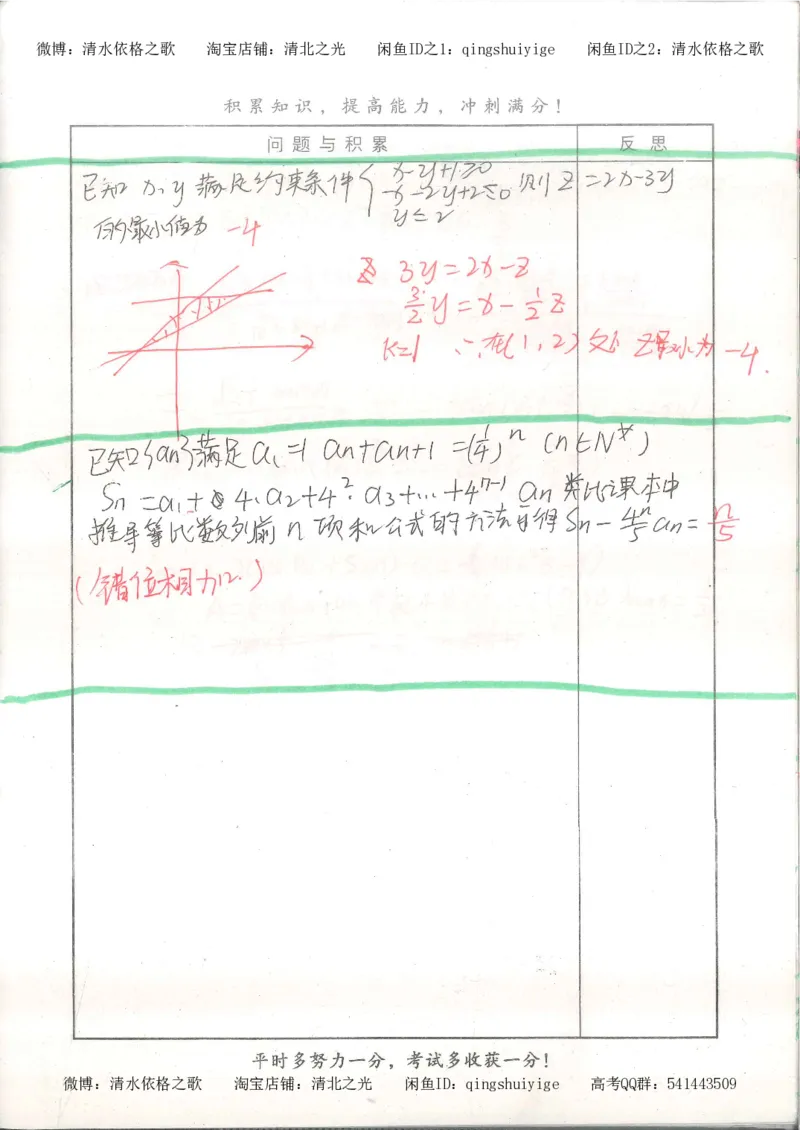 微博：清水依格之歌 淘宝店铺：清北之光 闲鱼ID之1：qingshuiyige 闲鱼ID之2：清水依格之歌
积累知识，提高能力，冲刺满分！
问题与积累 反思
已知 x、y 满足约束条件 { x-y+1≥0
x-2y+2≤0 则 z=2x-3y
y≤2
的最小值为 -4
3y=2x-z
3/2 y=x-1/2 z
K=1 ∴在(1,2)处 z最小为-4.
已知{an}满足 a₁=1 an+an+1=(1/4)ⁿ (n∈N*)
Sn=a₁+4·a₂+4²·a₃+…+4ⁿ⁻¹an 类比课本中
推导等比数列前n项和公式的方法可得 Sn-4ⁿ/5 an= n/5
(错位相加.)
平时多努力一分，考试多收获一分！
微博：清水依格之歌 淘宝店铺：清北之光 闲鱼ID：qingshuiyige 高考QQ群：541443509